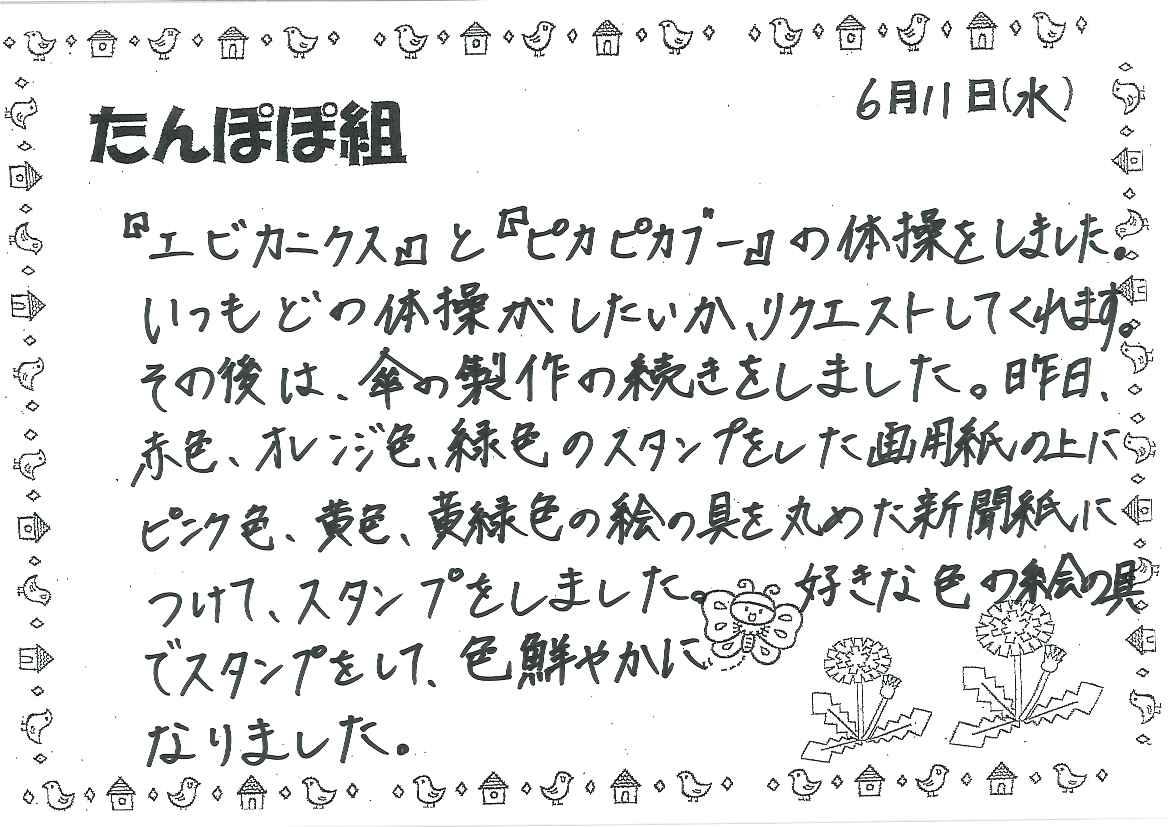 6月11日(水)
たんぽぽ組
『エビカニクス』と『ピカピカブー』の体操をしました。
いつもどの体操がしたいか、リクエストしてくれます。
その後は、傘の製作の続きをしました。昨日、
赤色、オレンジ色、緑色のスタンプをした画用紙の上に
ピンク色、黄色、黄緑色の絵の具を丸めた新聞紙に
つけて、スタンプをしました。好きな色の絵の具
でスタンプをして、色鮮やかに
なりました。